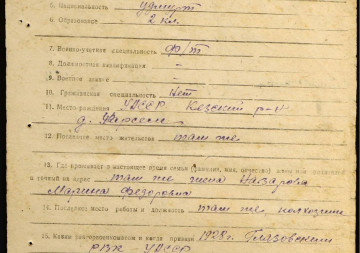 5. Национальность удмурт
6. Образование 2 кл.
7. Военно-учетная специальность ф/т
8. Должностная квалификация -
9. Военное звание -
10. Гражданская специальность нет
11. Место рождения УАССР Кезский р-н
д.
12. Постоянное место жительства там же
13. Где проживает в настоящее время семья (фамилия, имя, отчество)
и точный их адрес там же жена Назарова
Марина Федоровна
14. Последнее место работы и должность там же колхозник
15. Каким райвоенкоматом и когда призван 1928г. Глазовским
РВК УАССР